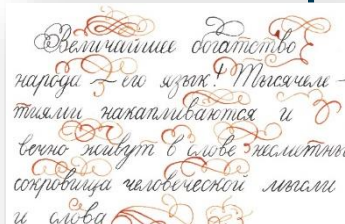 Величайшее богатство
народа — его язык! Тысячеле-
тиями накапливаются и
вечно живут в слове несметны
сокровища человеческой мысли
и слова